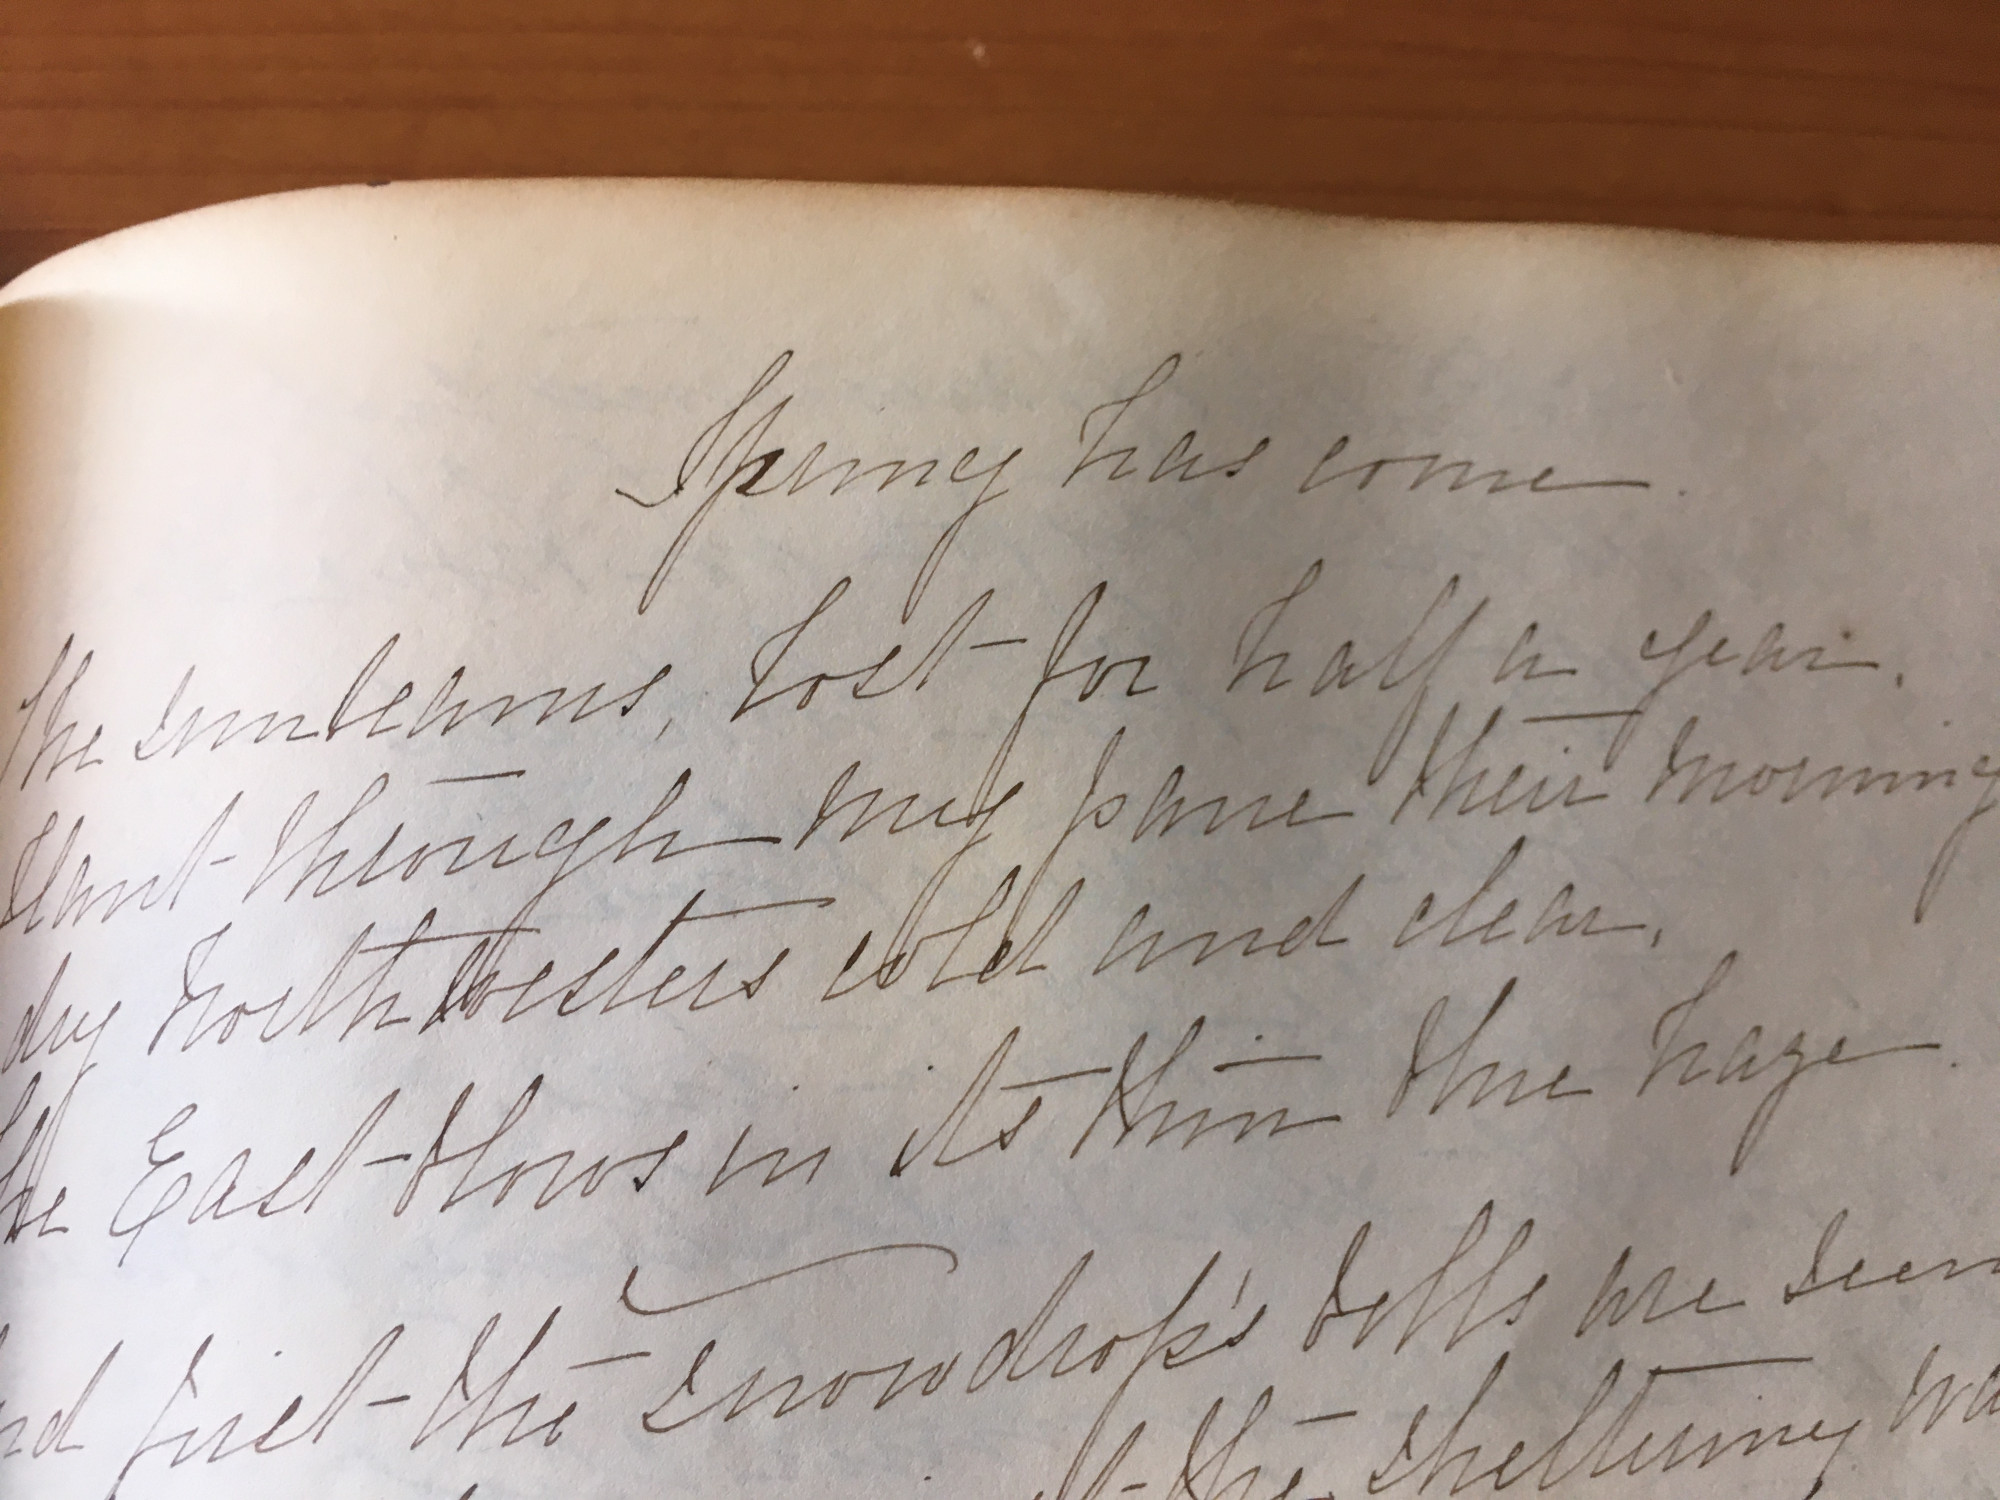 Spring has come.
The sunbeams, lost for half a year.
Slant through my pane their morning
dry northwesters cold and clear,
The East blows in its thin blue haze.
first the snowdrop's bells are seen
the sheltering